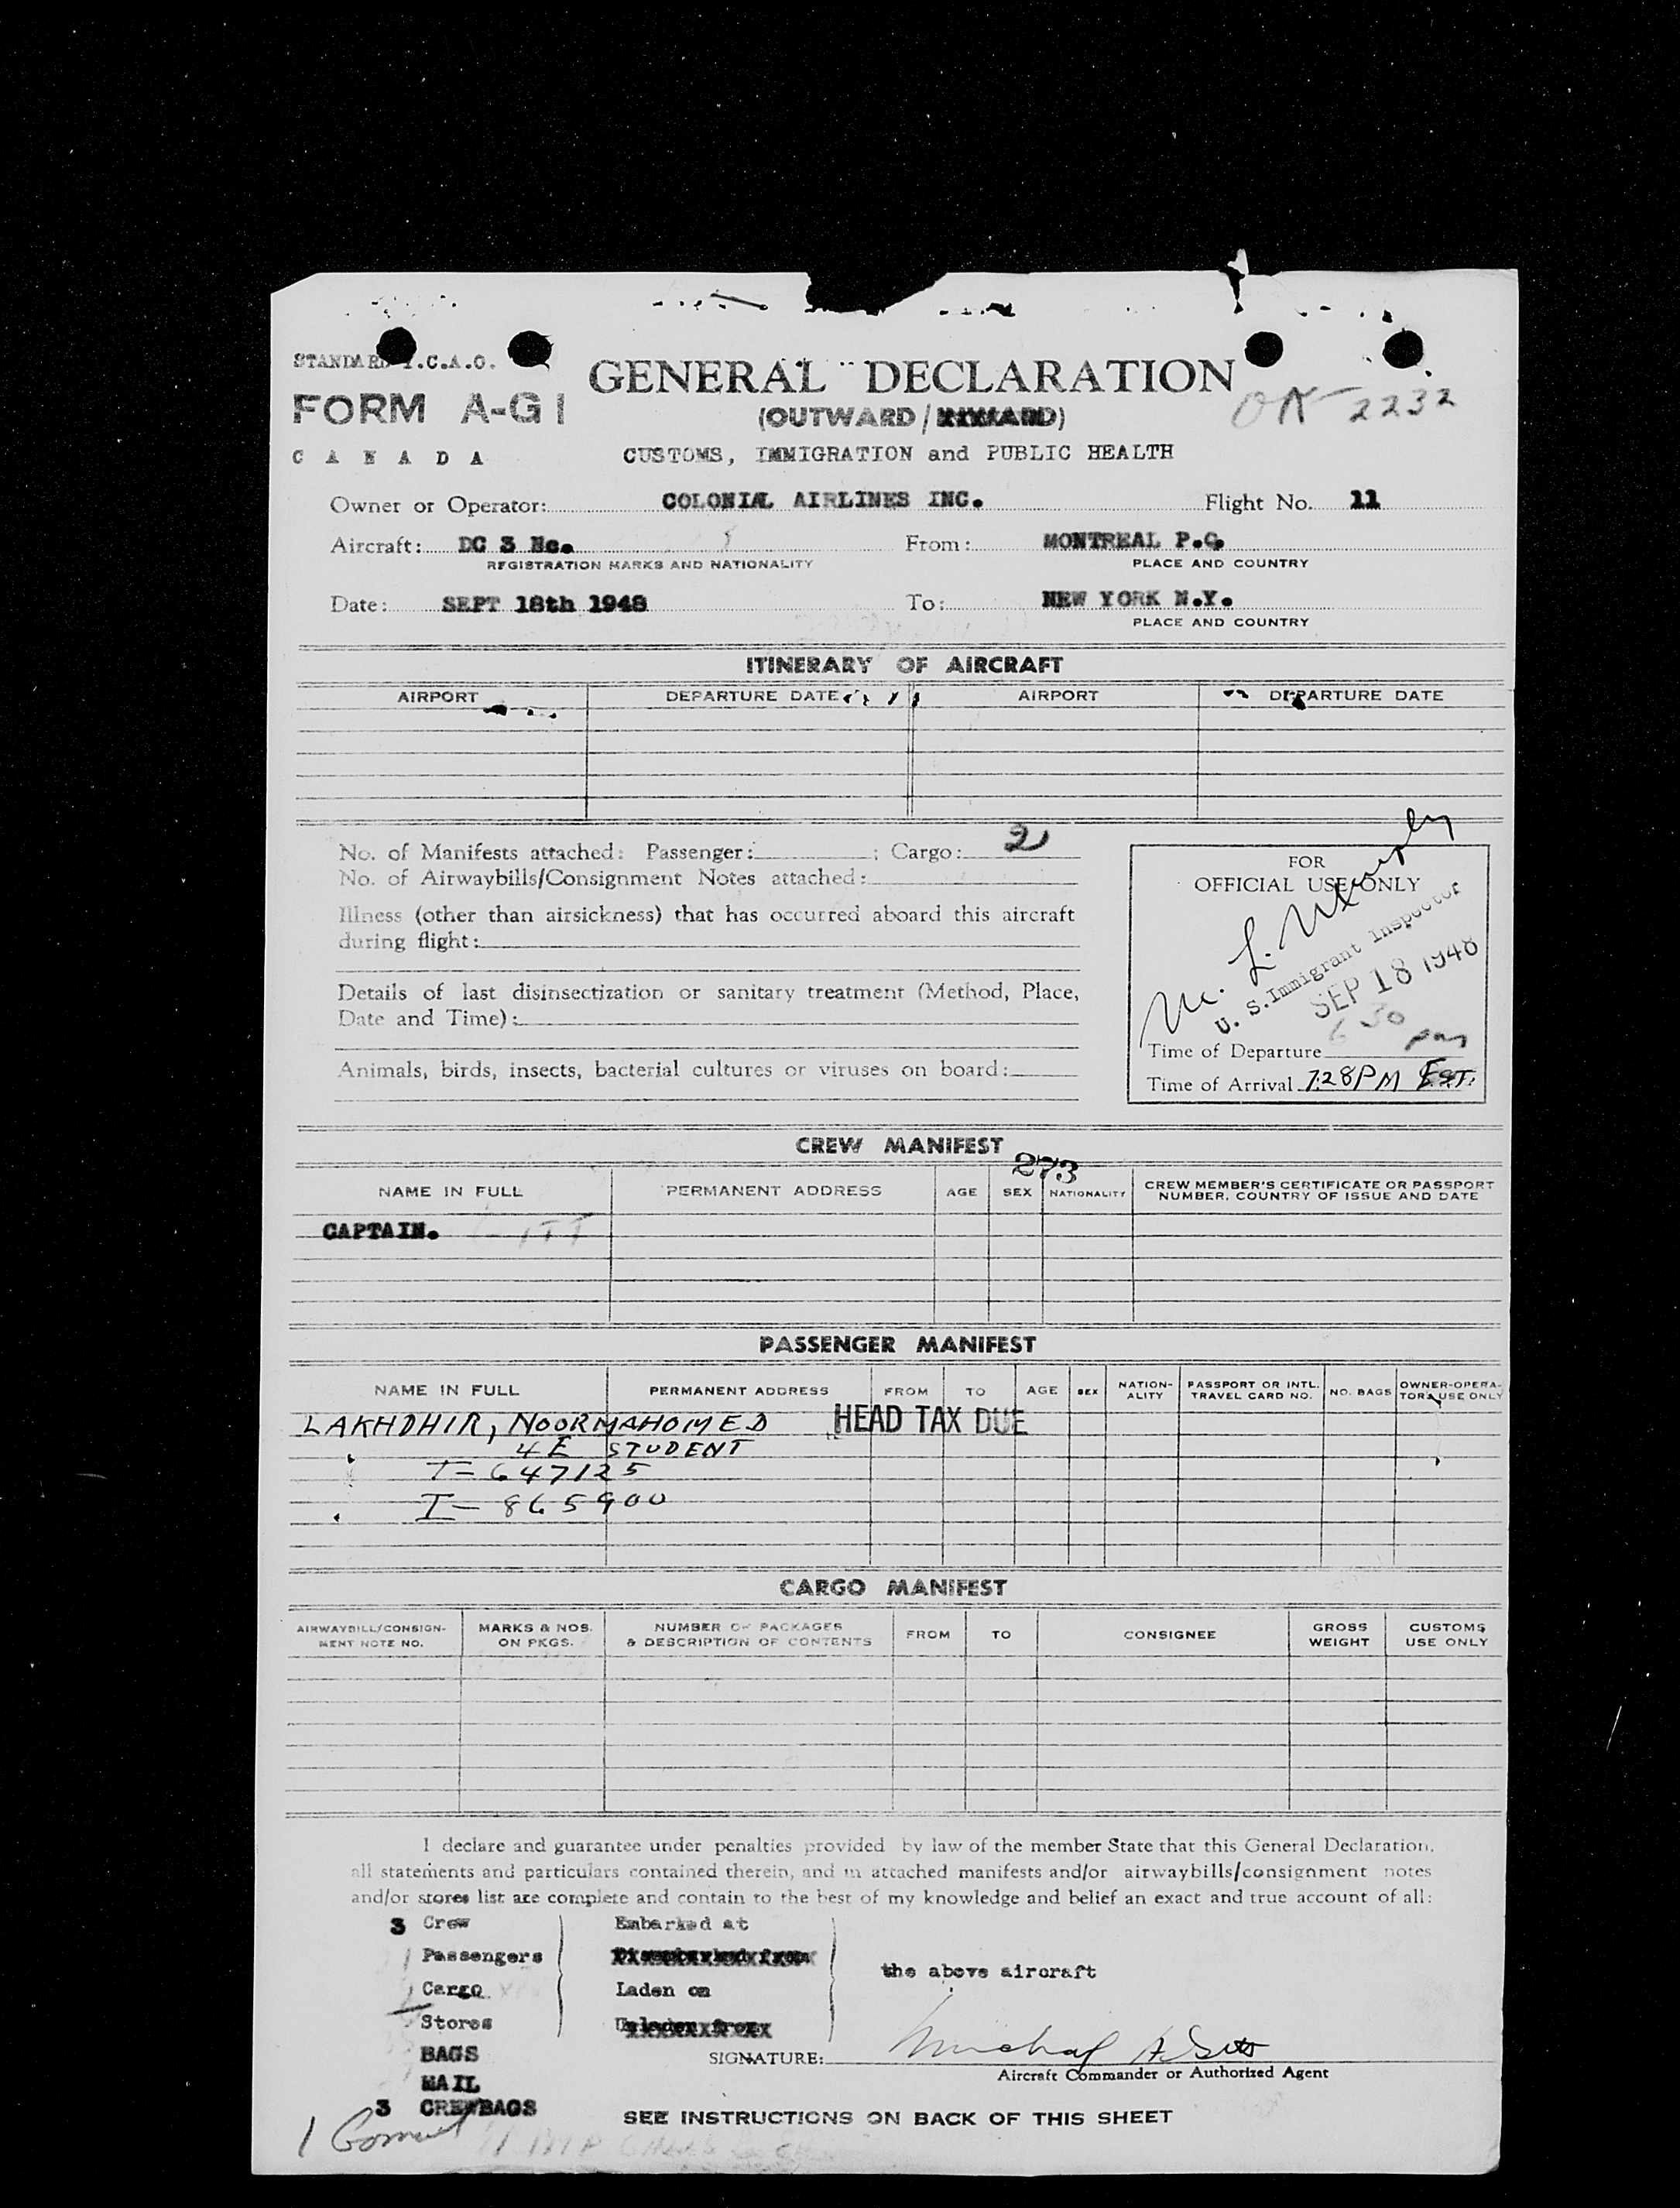 STANDARD I.C.A.O.
GENERAL DECLARATION
FORM A-G1
(OUTWARD/
ON 2232
CANADA
CUSTOMS, IMMIGRATION and PUBLIC HEALTH
Owner or Operator: COLONIAL AIRLINES INC. Flight No. 11
Aircraft: DC 3 Nc. From: MONTREAL P.Q.
REGISTRATION MARKS AND NATIONALITY PLACE AND COUNTRY
Date: SEPT 18th 1948 To: NEW YORK N.Y.
PLACE AND COUNTRY
ITINERARY OF AIRCRAFT
AIRPORT DEPARTURE DATE AIRPORT DEPARTURE DATE
No. of Manifests attached: Passenger: ; Cargo: 2
No. of Airwaybills/Consignment Notes attached:
Illness (other than airsickness) that has occurred aboard this aircraft
during flight:
Details of last disinsectization or sanitary treatment (Method, Place,
Date and Time):
Animals, birds, insects, bacterial cultures or viruses on board:
FOR
OFFICIAL USE ONLY
U. S. Immigrant Inspector
SEP 18 1948
6 30 pm
Time of Departure
Time of Arrival 7:28PM EST.
CREW MANIFEST
273
NAME IN FULL PERMANENT ADDRESS AGE SEX NATIONALITY CREW MEMBER'S CERTIFICATE OR PASSPORT
NUMBER, COUNTRY OF ISSUE AND DATE
CAPTAIN.
PASSENGER MANIFEST
NAME IN FULL PERMANENT ADDRESS FROM TO AGE SEX NATION-ALITY PASSPORT OR INTL. TRAVEL CARD NO. NO. BAGS OWNER-OPERA-TORS USE ONLY
LAKHDHIR, NOORMAHOMED HEAD TAX DUE
4E STUDENT
T-647125
I-865900
CARGO MANIFEST
AIRWAYBILL/CONSIGN-MENT NOTE NO. MARKS & NOS. ON PKGS. NUMBER OF PACKAGES & DESCRIPTION OF CONTENTS FROM TO CONSIGNEE GROSS WEIGHT CUSTOMS USE ONLY
I declare and guarantee under penalties provided by law of the member State that this General Declaration,
all statements and particulars contained therein, and in attached manifests and/or airwaybills/consignment notes
and/or stores list are complete and contain to the best of my knowledge and belief an exact and true account of all:
3 Crew Embarked at
Passengers
the above aircraft
Cargo Laden on
Stores
BAGS
SIGNATURE:
Aircraft Commander or Authorized Agent
MAIL
3 CREWBAGS
SEE INSTRUCTIONS ON BACK OF THIS SHEET